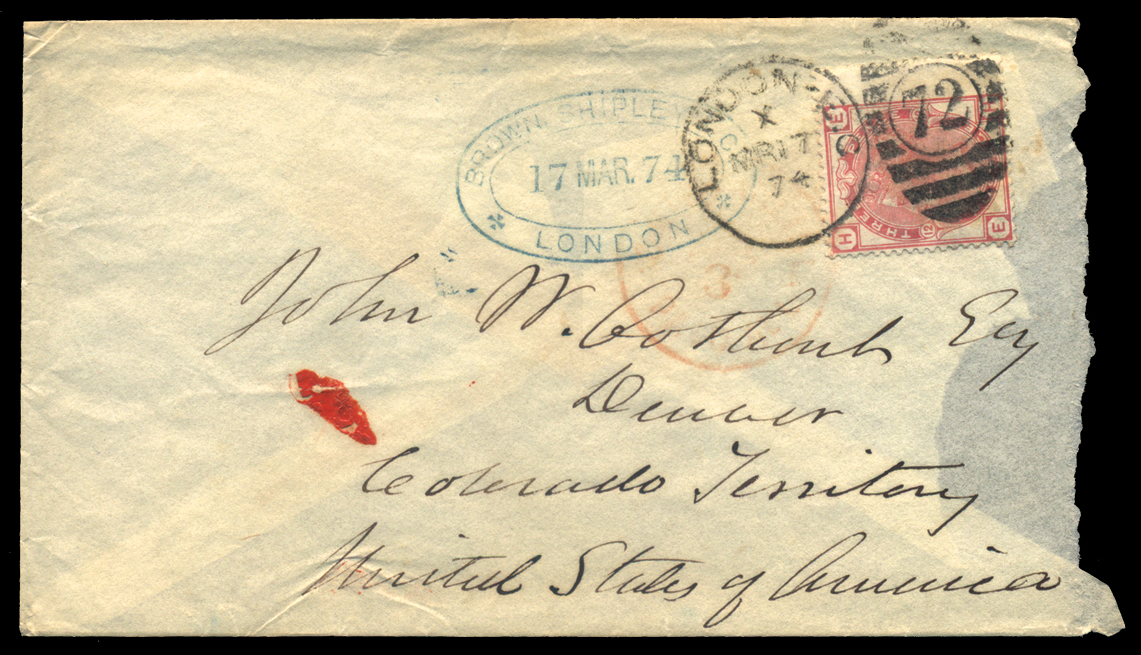 BROWN SHIPLEY
17 MAR. 74
LONDON
LONDON-
X
MR 17
74
72
E
THREE
12
H E
3
John W. Esq
Denver
Colorado Territory
United States of America